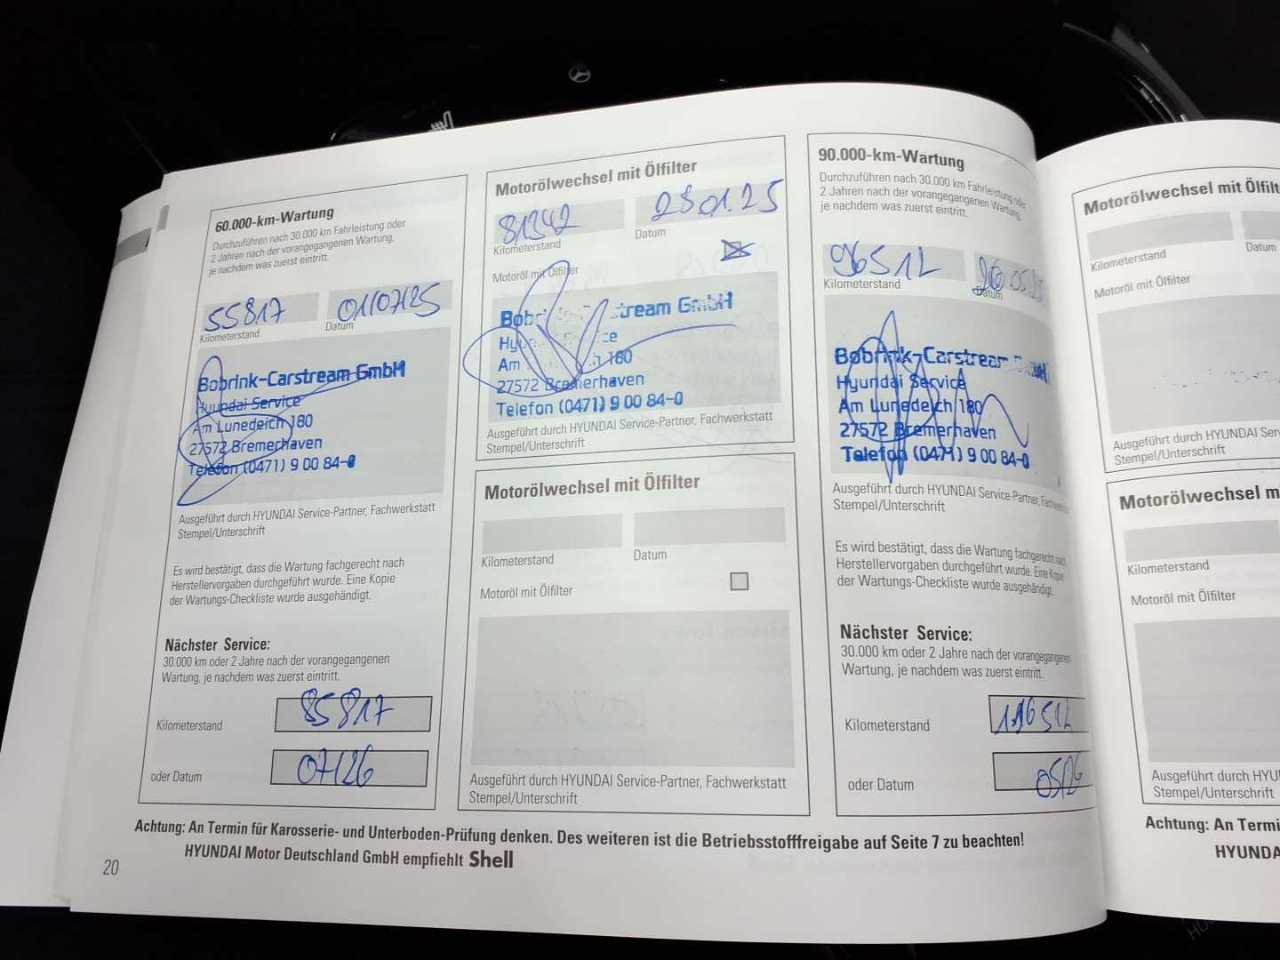 60.000-km-Wartung
Durchzuführen nach 30.000 km Fahrleistung oder
2 Jahren nach der vorangegangenen Wartung,
je nachdem was zuerst eintritt.
55817 01/07/25
Kilometerstand Datum
Bobrink-Carstream GmbH
Hyundai Service
Am Lunedeich 180
27572 Bremerhaven
Telefon (0471) 9 00 84-0
Ausgeführt durch HYUNDAI Service-Partner, Fachwerkstatt
Stempel/Unterschrift
Es wird bestätigt, dass die Wartung fachgerecht nach
Herstellervorgaben durchgeführt wurde. Eine Kopie
der Wartungs-Checkliste wurde ausgehändigt.
Nächster Service:
30.000 km oder 2 Jahre nach der vorangegangenen
Wartung, je nachdem was zuerst eintritt.
Kilometerstand 85817
oder Datum 07/26
Motorölwechsel mit Ölfilter
81342 28.01.25
Kilometerstand Datum
Motoröl mit Ölfilter
GmbH
Am 180
27572 Bremerhaven
Telefon (0471) 9 00 84-0
Ausgeführt durch HYUNDAI Service-Partner, Fachwerkstatt
Stempel/Unterschrift
Motorölwechsel mit Ölfilter
Kilometerstand Datum
Motoröl mit Ölfilter
Ausgeführt durch HYUNDAI Service-Partner, Fachwerkstatt
Stempel/Unterschrift
90.000-km-Wartung
Durchzuführen nach 30.000 km Fahrleistung oder
2 Jahren nach der vorangegangenen Wartung,
je nachdem was zuerst eintritt.
96512
Kilometerstand Datum
Bobrink-Carstream
Hyundai Service
Am Lunedeich 180
27572 Bremerhaven
Telefon (0471) 9 00 84-0
Ausgeführt durch HYUNDAI Service-Partner,
Stempel/Unterschrift
Es wird bestätigt, dass die Wartung fachgerecht nach
Herstellervorgaben durchgeführt wurde. Eine Kopie
der Wartungs-Checkliste wurde ausgehändigt.
Nächster Service:
30.000 km oder 2 Jahre nach der vorangegangenen
Wartung, je nachdem was zuerst eintritt.
Kilometerstand 116512
oder Datum 05/26
Achtung: An Termin für Karosserie- und Unterboden-Prüfung denken. Des weiteren ist die Betriebsstofffreigabe auf Seite 7 zu beachten!
HYUNDAI Motor Deutschland GmbH empfiehlt Shell
20
Motorölwechsel mit Ölfilt
Kilometerstand Datum
Motoröl mit Ölfilter
Ausgeführt durch HYUNDAI Serv
Stempel/Unterschrift
Motorölwechsel m
Kilometerstand
Motoröl mit Ölfilter
Ausgeführt durch HYU
Stempel/Unterschrift
Achtung: An Termi
HYUNDA